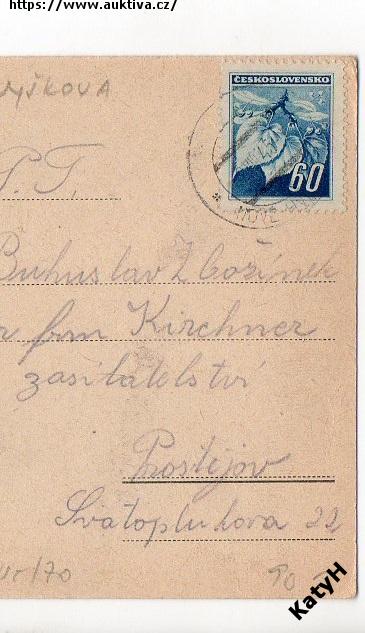 https://www.auktiva.cz/
VYŠKOVA
ČESKOSLOVENSKO
60
P.T.
Bohuslav Zbožínek
frm Kirchner
zasilatelství
Prostějov
Svatoplukova 22
KatyH